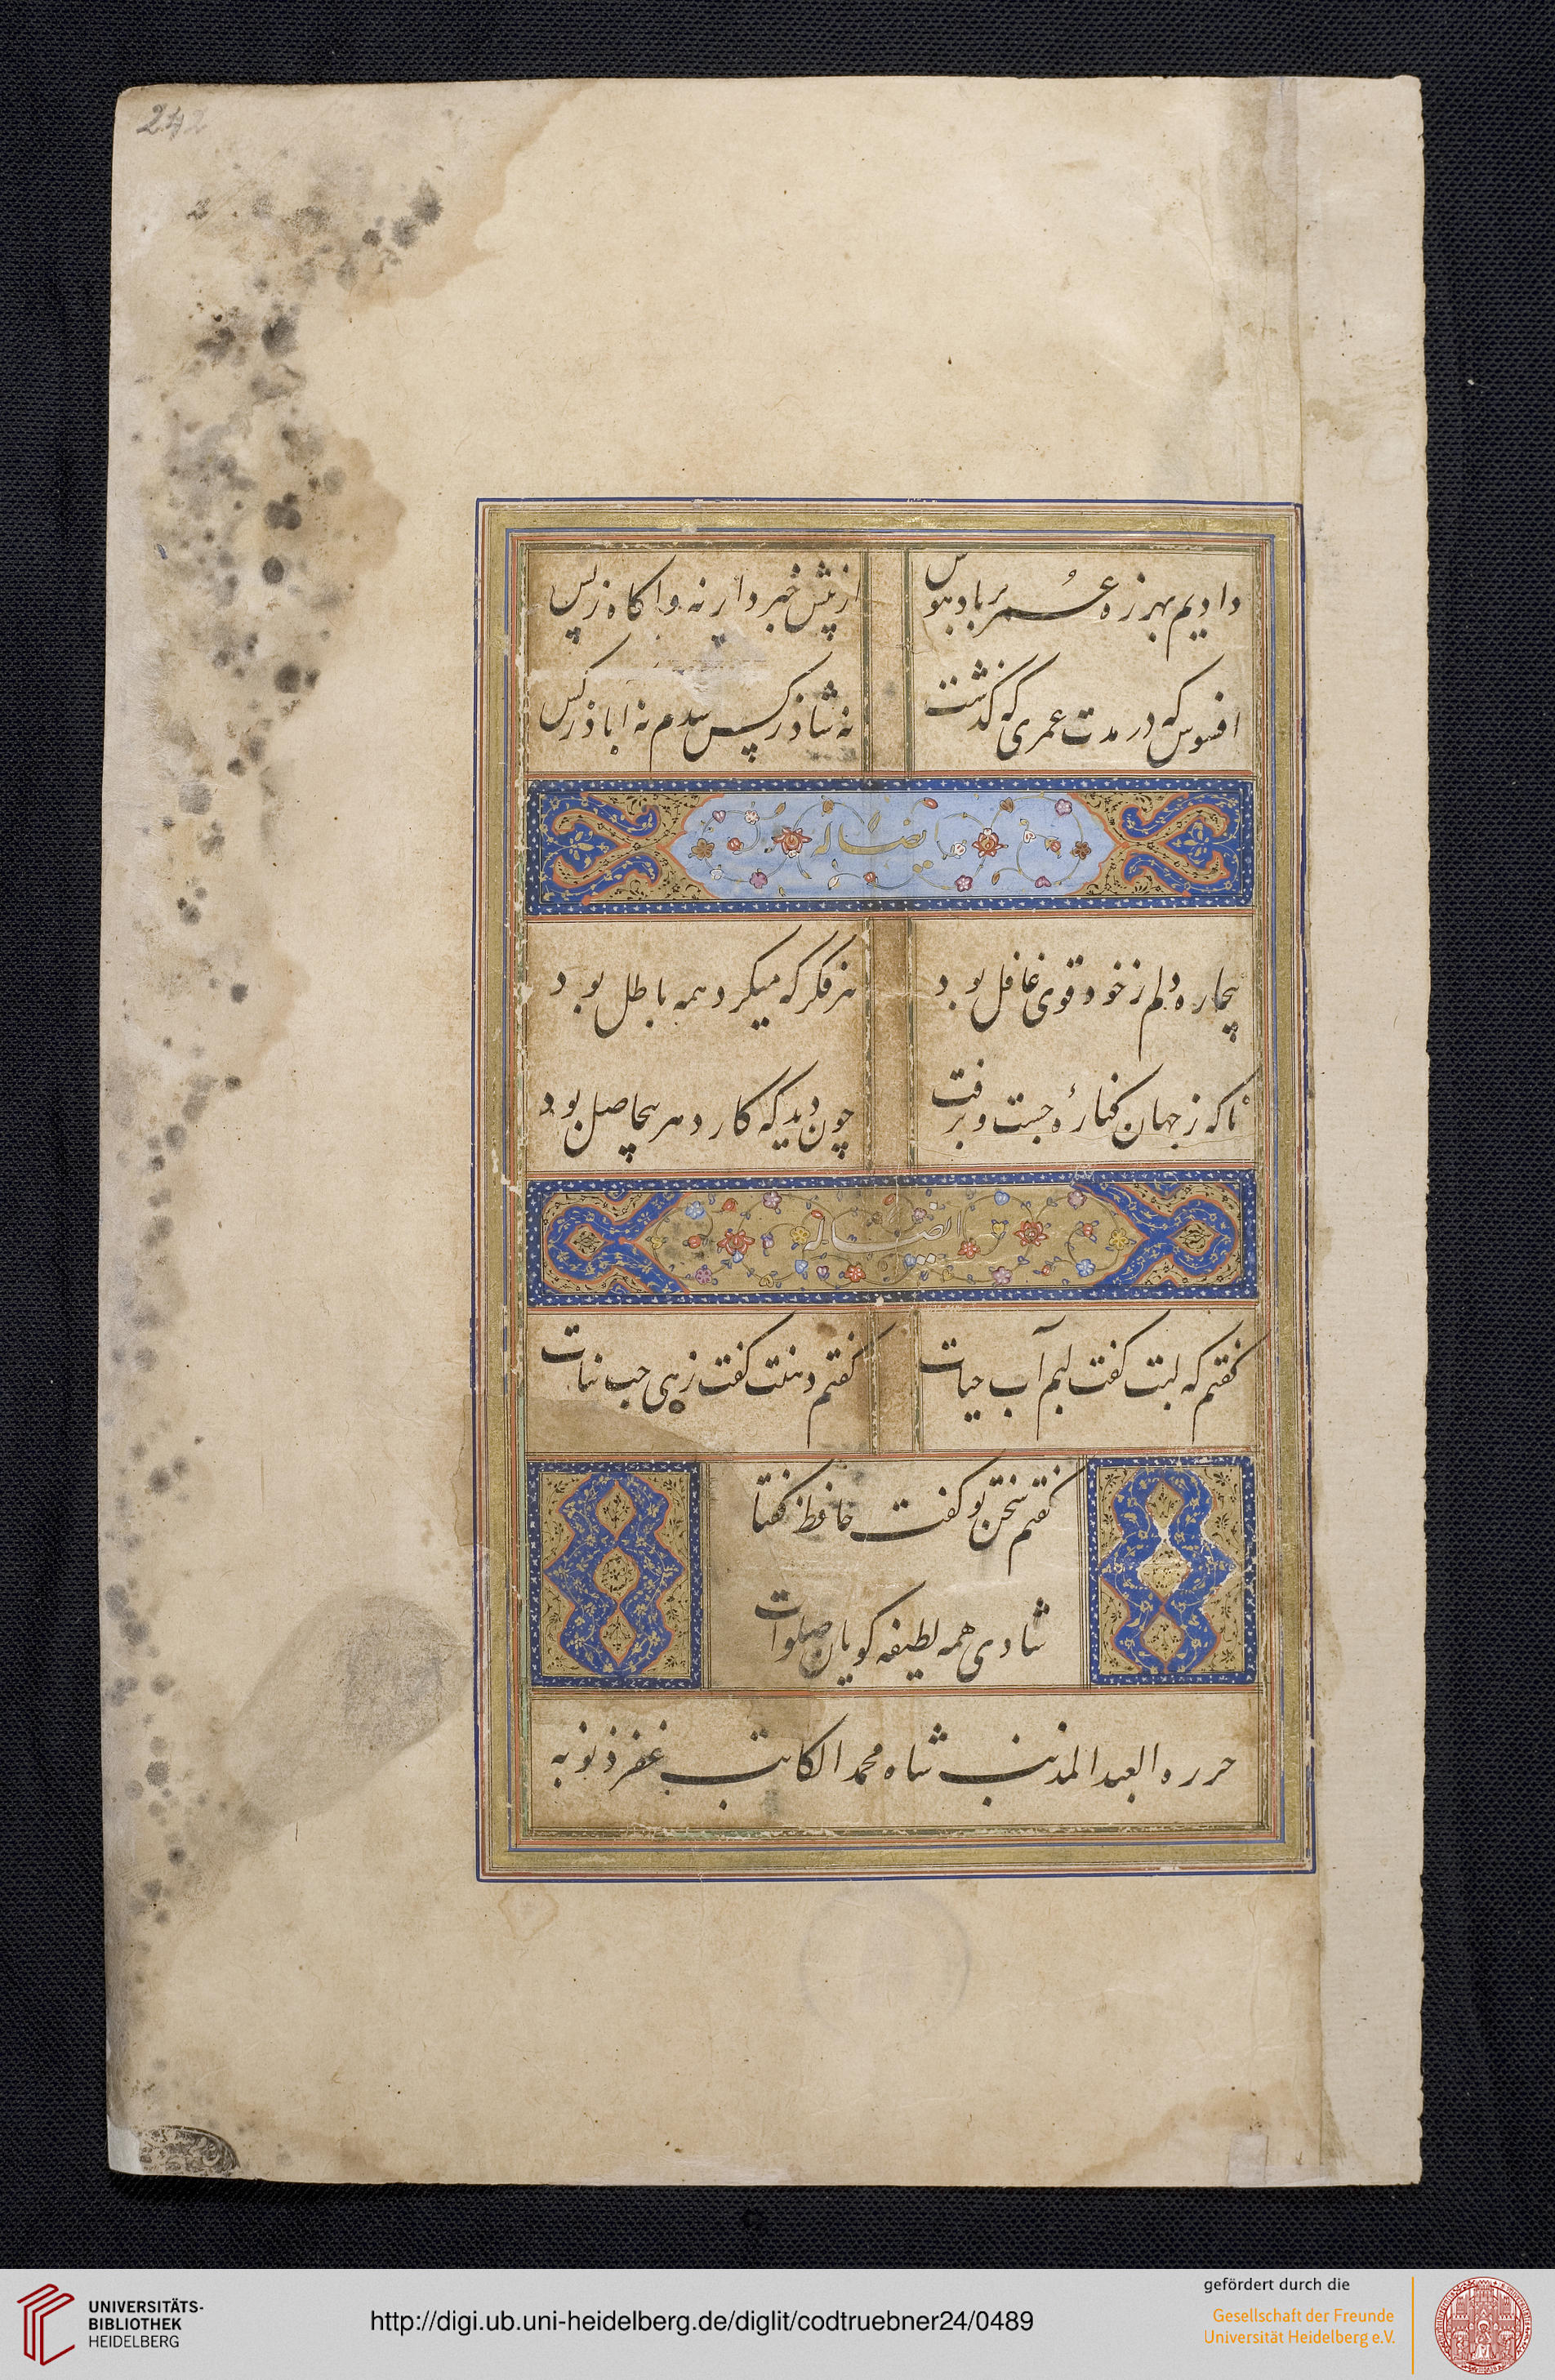 242
دادیم بهرزه عمر بر باد هوس
از پیش خبر دار نه و اکاه ز پس
افسوس که در مدت عمری که گذشت
نه شاد ز کس شدم نه اباذ ز کس
ایضا له
بیچاره دلم ز خود قوی غافل بود
هر فکر که میکرد همه باطل بود
ناکه ز جهان کنارهٔ جست و برفت
چون دید که کار دهر بیحاصل بود
ایضا له
گفتم که لبت گفت لبم آب حیات
گفتم دهنت گفت زهی حب نبات
گفتم سخن تو گفت حافظ گفتا
شادی همه لطیفه کویان صلوات
حرره العبد المذنب شاه محمد الکاتب غفر ذنوبه
UNIVERSITÄTS-
BIBLIOTHEK
HEIDELBERG
http://digi.ub.uni-heidelberg.de/diglit/codtruebner24/0489
gefördert durch die
Gesellschaft der Freunde
Universität Heidelberg e.V.